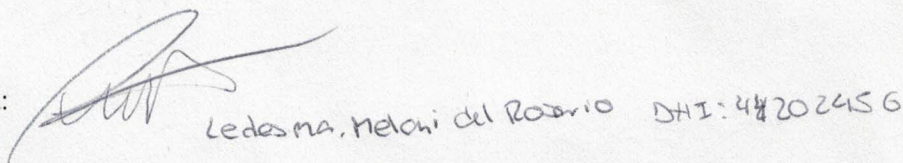 : Ledesma, Meloni del Rosario DNI: 44202456